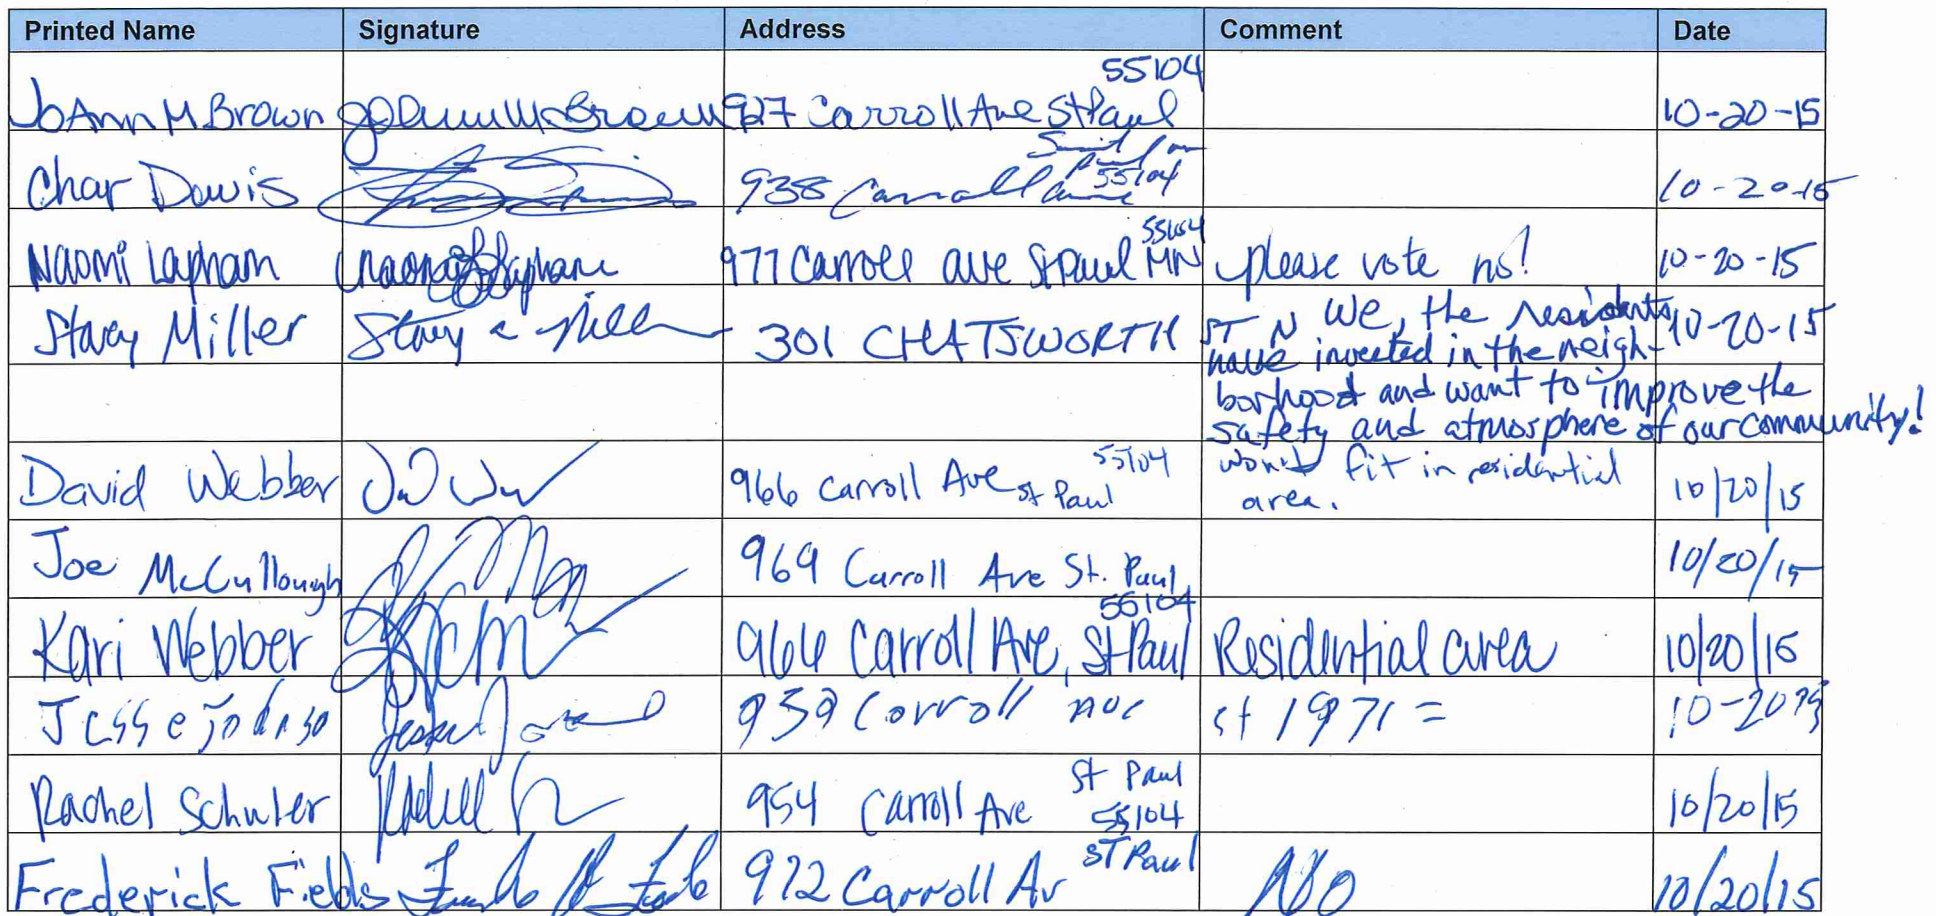 Printed Name Signature Address Comment Date
55104
JoAnn M Brown JoAnn M Brown 927 Carroll Ave St Paul 10-20-15
Char Davis 938 Carroll 55104 10-20-15
55104
Naomi Lapham Naomi Lapham 977 Carroll ave St Paul MN please vote no! 10-20-15
Stacy Miller Stacy Miller 301 CHATSWORTH ST N We, the residents 10-20-15
have invested in the neigh-
borhood and want to improve the
safety and atmosphere of our community!
David Webber 966 Carroll Ave St Paul 55104 won't fit in residential 10/20/15
area.
Joe McCullough 969 Carroll Ave St. Paul 10/20/15
55104
Kari Webber 966 Carroll Ave, St Paul Residential area 10/20/15
Jesse 959 Carroll ave st 1971 = 10-20 15
St Paul
Rachel Schuler 954 Carroll Ave 55104 10/20/15
ST Paul
Frederick Fields 972 Carroll Av No 10/20/15